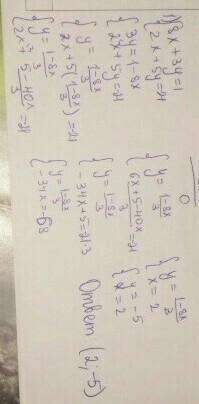 1) { 8x + 3y = 1
{ 2x + 5y = -21
{ 3y = 1 - 8x
{ 2x + 5y = -21
{ y = (1-8x)/3
{ 2x + 5((1-8x)/3) = -21
{ y = (1-8x)/3
{ 2x + (5-40x)/3 = -21
{ y = (1-8x)/3
{ (6x+5-40x)/3 = -21
{ y = (1-8x)/3
{ -34x + 5 = -21·3
{ y = (1-8x)/3
{ -34x = -68
{ y = (1-8x)/3
{ x = 2
{ y = -5
{ x = 2
Ответ (2, -5)